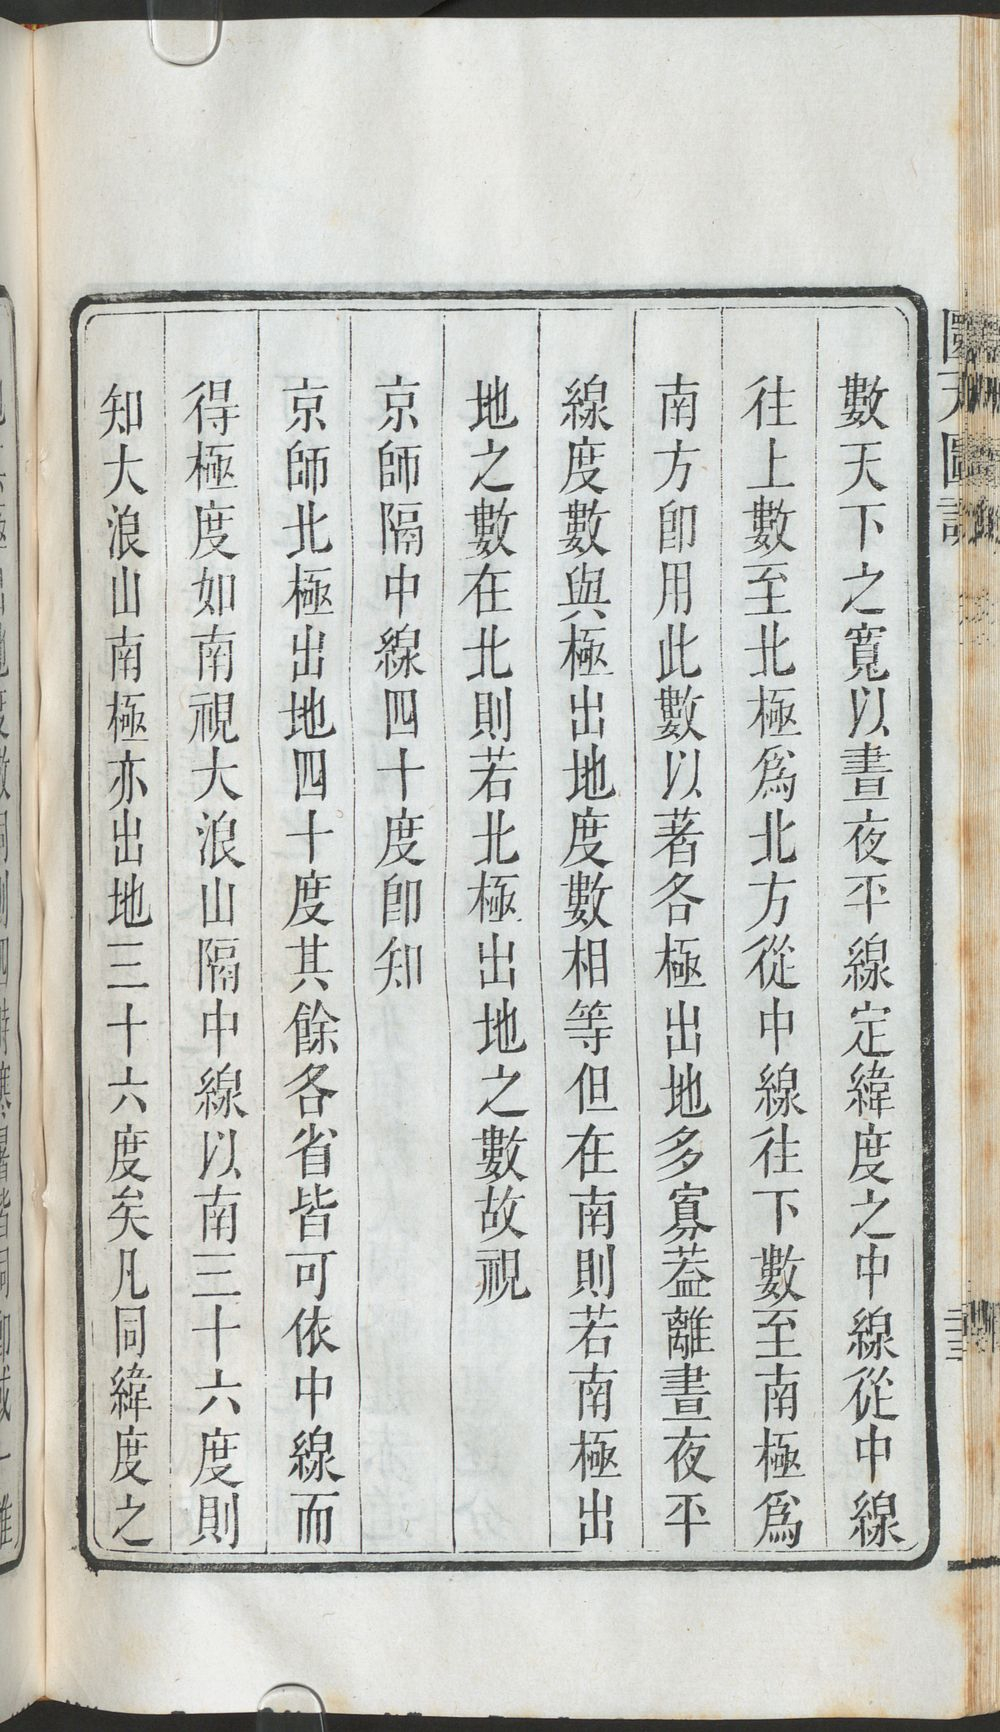 數天下之寬以晝夜平線定緯度之中線從中線
往上數至北極爲北方從中線往下數至南極爲
南方卽用此數以著各極出地多寡蓋離晝夜平
線度數與極出地度數相等但在南則若南極出
地之數在北則若北極出地之數故視
京師隔中線四十度卽知
京師北極出地四十度其餘各省皆可依中線而
得極度如南視大浪山隔中線以南三十六度則
知大浪山南極亦出地三十六度矣凡同緯度之